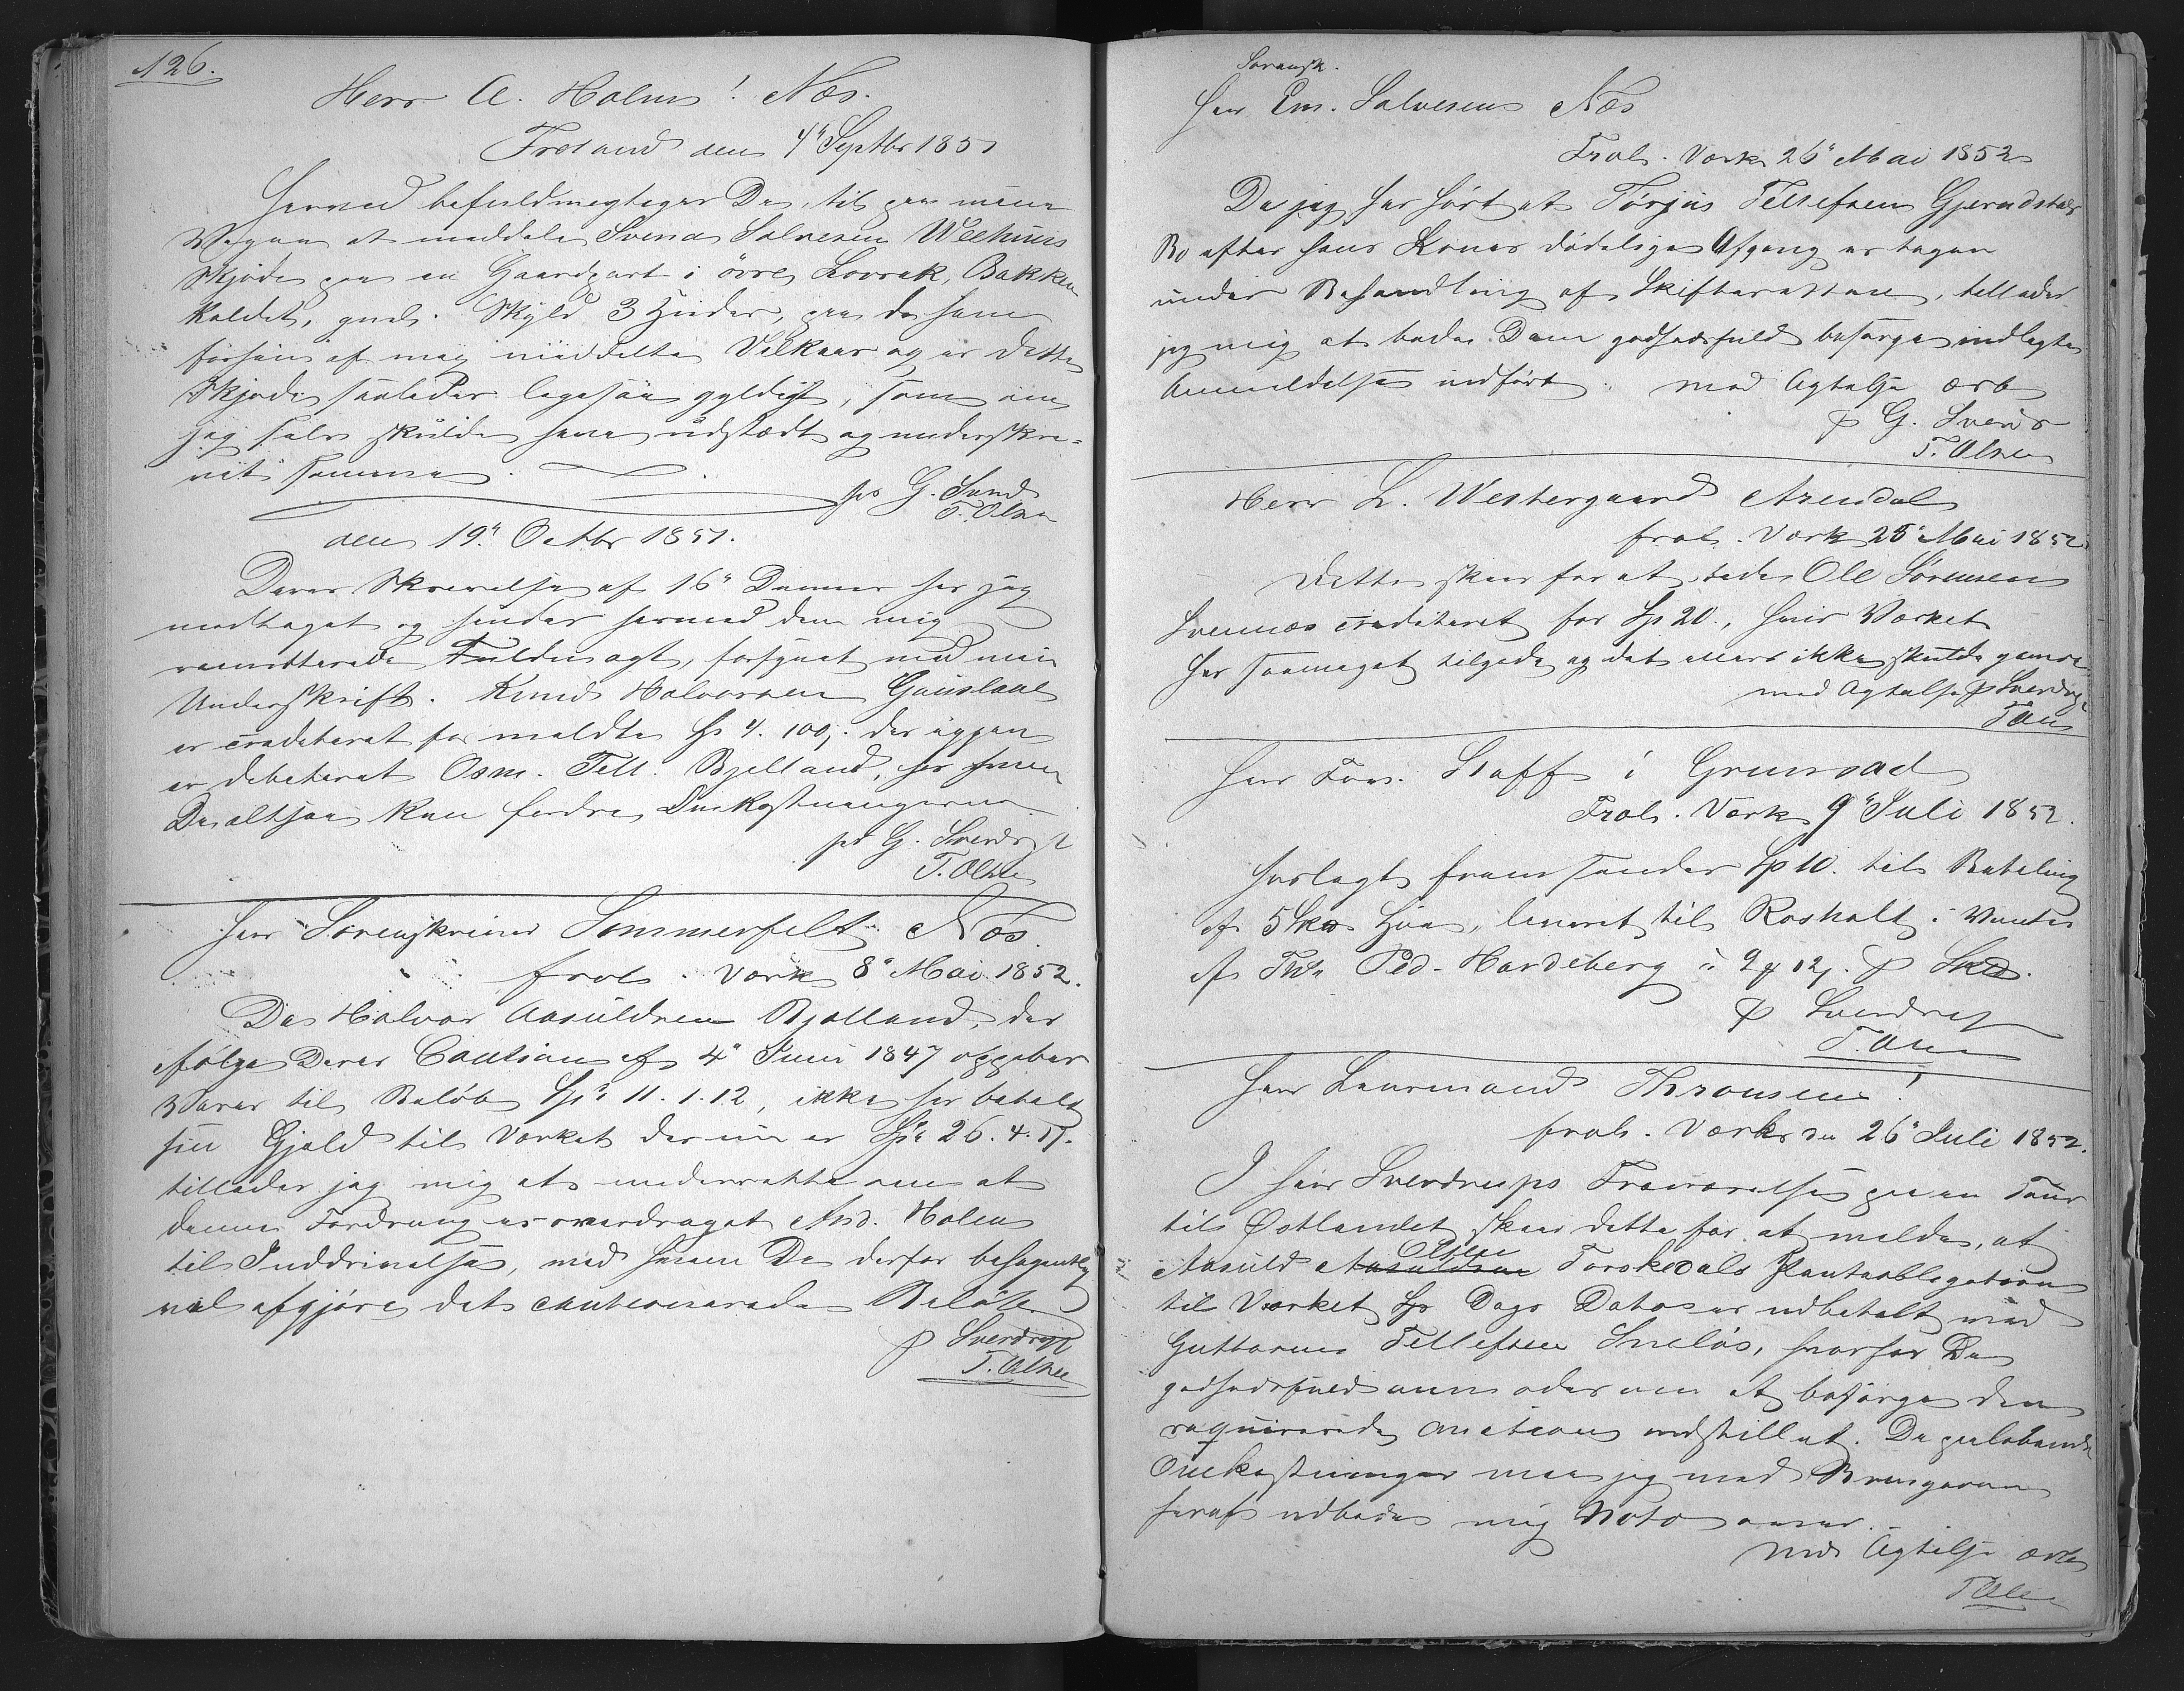 126.
Herr A. Holm! Næs.
Froland den 4" Septbr 1851
Herved befuldmægtiges De, til paa mine
Vegne at meddele Svend Salvesen
Skjøde paa en Gaardpart i övre Lovrak, Bakken
kaldet, gml. Skyld 3 Huder, paa de ham
forhen af mig meddelte Vilkaar og er dette
Skjøde saaledes ligesaa gyldigt, som om
jeg selv skulde have udstædt og underskre-
vet samme.
pr G. Sverd
T. Olsen
den 19" Octbr 1851.
Deres Skrivelse af 16" Dennes har jeg
modtaget og sender hermed den mig
remitterede Fuldmagt, forsynet med min
Underskrift. Knud Halvorsen Gauslaae
er crediteret for meldte Sp 4. 100,. der igjen
er debiteret Osm. Tell. Bjelland, hos hvem
De altsaa kan fordre Omkostningerne
pr G. Sverdrup
T. Olsen
Herr Sorenskriver Sommerfelt Næs.
Frol. Værk 8" Mai 1852.
Da Halvor Aasuldsen Bjelland, der
ifølge Deres Caution af 4" Juni 1847 oppebar
Varer til Beløb Sp 11. 1. 12, ikke har betalt
sin Gjæld til Værket der nu er Sp 26. 4. 17.
tillader jeg mig at underrette om at
denne Fordring er overdraget And. Holm
til Inddrivelse, med hvem De derfor behageligst
vil afgjøre det cautionerede Beløb
p Sverdrup
T. Olsen
Sorensk.
Herr Em. Salvesen Næs
Frol. Værk 26" Mai 1852
Da jeg har hört at Törjus Tellefsen Gjerndstals
Bo efter hans Kones dödelige Afgang er tagen
under Behandling af Skifteretten, tillader
jeg mig at bede Dem godhedsfuld besørge indlagte
Anmeldelse indført. med Agtelse ærb
p G. Sverdr
T. Olsen
Herr L. Westergaard Arendal
Frol. Værk 25" Mai 1852
Dette skeer for at bede Ole Sørensen
Svennæs crediteret for Sp 20., hvis Værket
har saameget tilgode og det ellers ikke skulde genere
med Agtelse p Sverdrup
T Olsen
Herr Staff i Grunsad
Frol. Værk 9" Juli 1852.
Indlagt fremsendes Sp 10. til Betaling
af 5 Skd Høe, leveret til Rosholt i Vinter
af Ped. Hardeberg p Skd.
p Sverdrup
T. Olsen
Herr Leensmand Thronsen!
Frol. Værk den 26" Juli 1852.
I Herr Sverdrups Fraværelse paa en Tour
til Østlandet skeer dette for at melde, at
Olsen
Aasuld Aasuldsen Torskedals Panteobligation
til Værket Sp Dags Dato er udbetalt med
Guttorm Tellefsen Sneløs, hvorfor De
godhedsfuld anmodes om at besørge den
requirerede Auction indstillet. De paaløbende
Omkostninger maa jeg med Bringeren
heraf udbede mig Nota over.
med Agtelse ærb
T Olsen